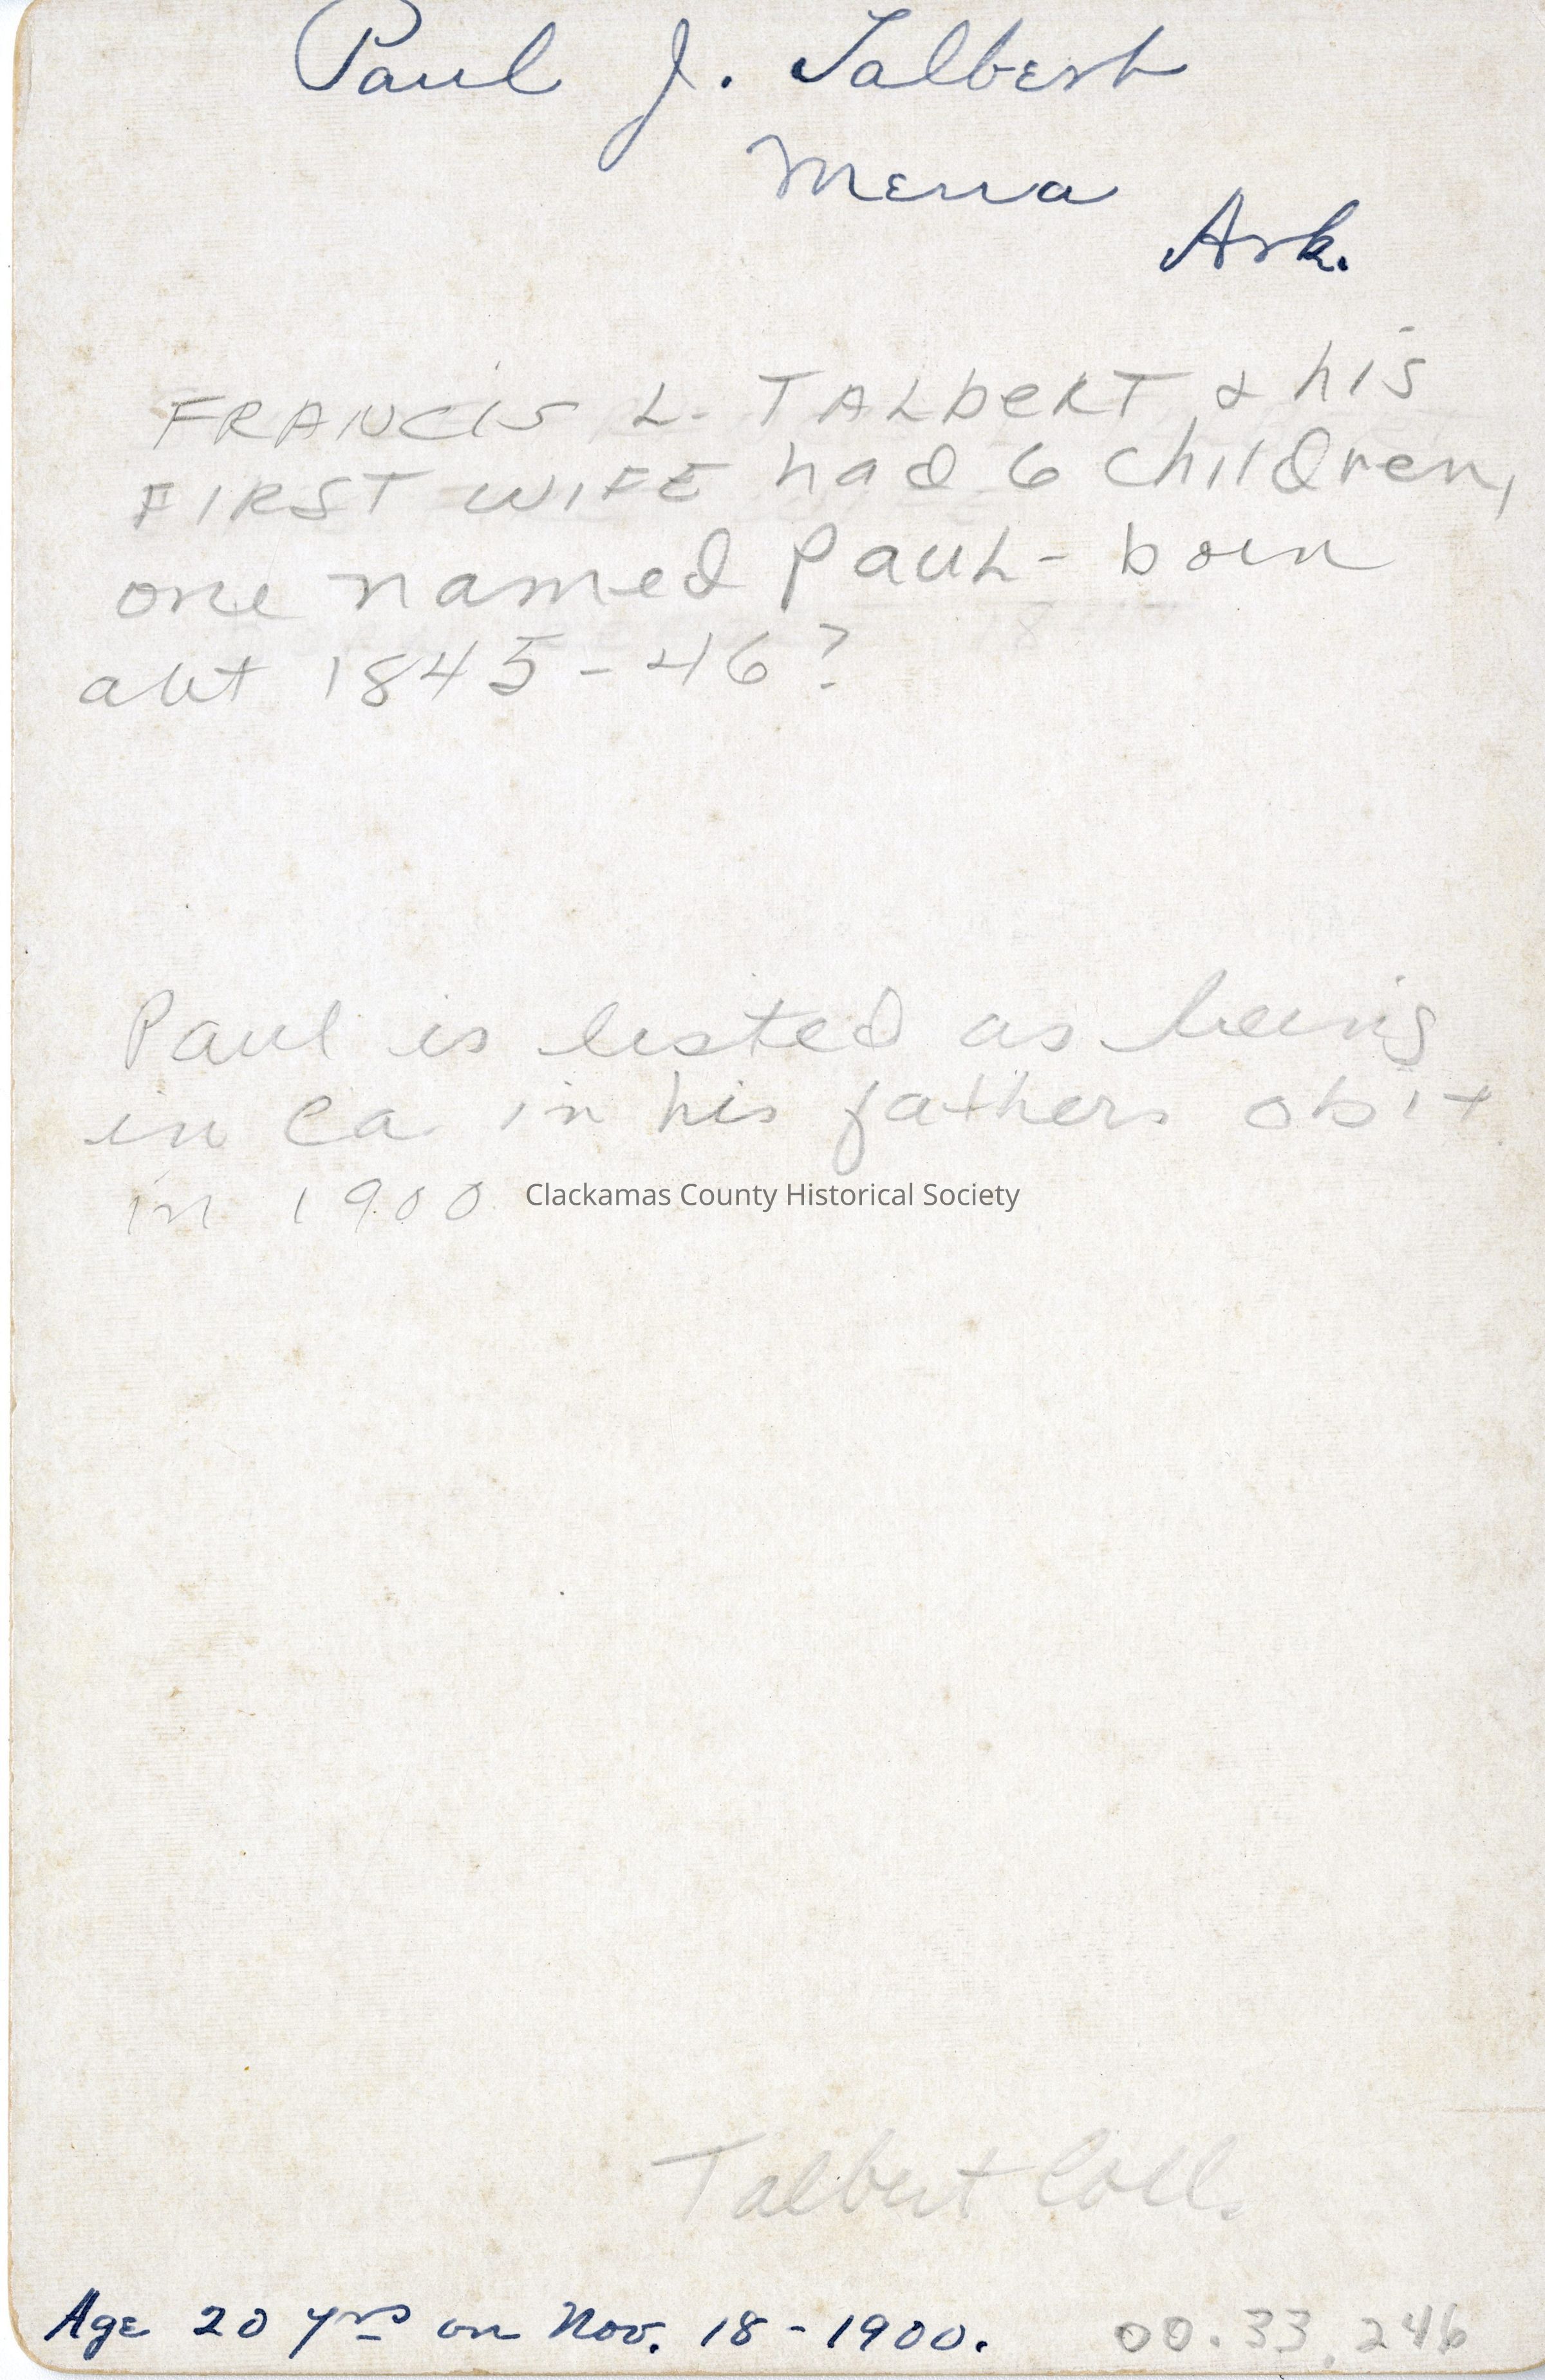 Paul J. Talbert
Mena
Ark.
FRANCIS L. TALbeRT & his
FIRST WIFE had 6 children,
one named Paul - born
abt 1845-46?
Paul is listed as being
in Ca in his fathers obit
in 1900
Clackamas County Historical Society
Talbert Coll.
Age 20 yrs on Nov. 18-1900.
00.33.246